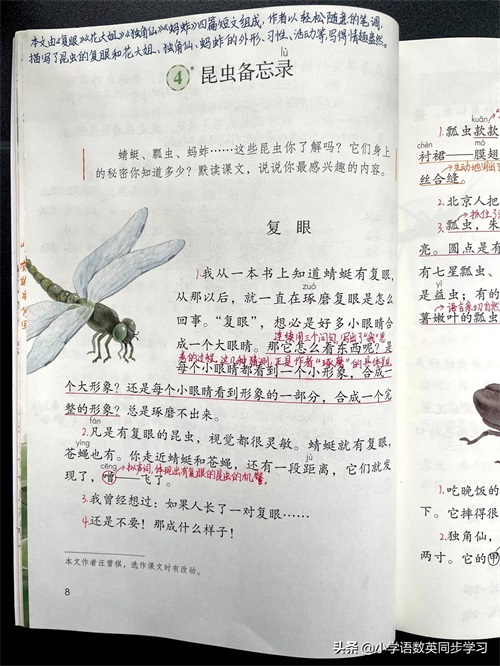 本文由《复眼》《花大姐》《独角仙》《蚂蚱》四篇短文组成,作者以轻松随意的笔调,
描写了昆虫的复眼和花大姐、独角仙、蚂蚱的外形、习性、活动等,写得情趣盎然。
lù
4* 昆虫备忘录
蜻蜓、瓢虫、蚂蚱……这些昆虫你了解吗?它们身上
的秘密你知道多少?默读课文,说说你最感兴趣的内容。
复 眼
1.我从一本书上知道蜻蜓有复眼,
zuó
从那以后,就一直在琢磨复眼是怎么
回事。“复眼”,想必是好多小眼睛合
连续用三个问句,写出了“我”思
成一个大眼睛。那它怎么看东西呢?是
考的过程,这几种猜测,正是作者“琢磨”的具体现
每个小眼睛都看到一个小形象,合成一
个大形象?还是每个小眼睛看到形象的一部分,合成一个完
整的形象?总是琢磨不出来。
fán
2.凡是有复眼的昆虫,视觉都很灵敏。蜻蜓就有复眼,
yíng
苍蝇也有。你走近蜻蜓和苍蝇,还有一段距离,它们就发
jù
cēng
拟声词,体现出有复眼的昆虫的机警
现了,噌——飞了。
3.我曾经想过:如果人长了一对复眼……
4.还是不要!那成什么样子!
本文作者汪曾祺,选作课文时有改动。
8
kuǎn
1.瓢虫款款
chèn
衬裙——膜翅
生动地写出
丝合缝。
2.北京人把
抓住了
3.瓢虫,朱
亮。圆点是有
有七星瓢虫、
yì
是益虫;有的
语言亲切自然
薯嫩叶的瓢虫
1.吃晚饭的
下。它摔得很
2.独角仙,
两寸。它的甲
头条 @小学语数英同步学习